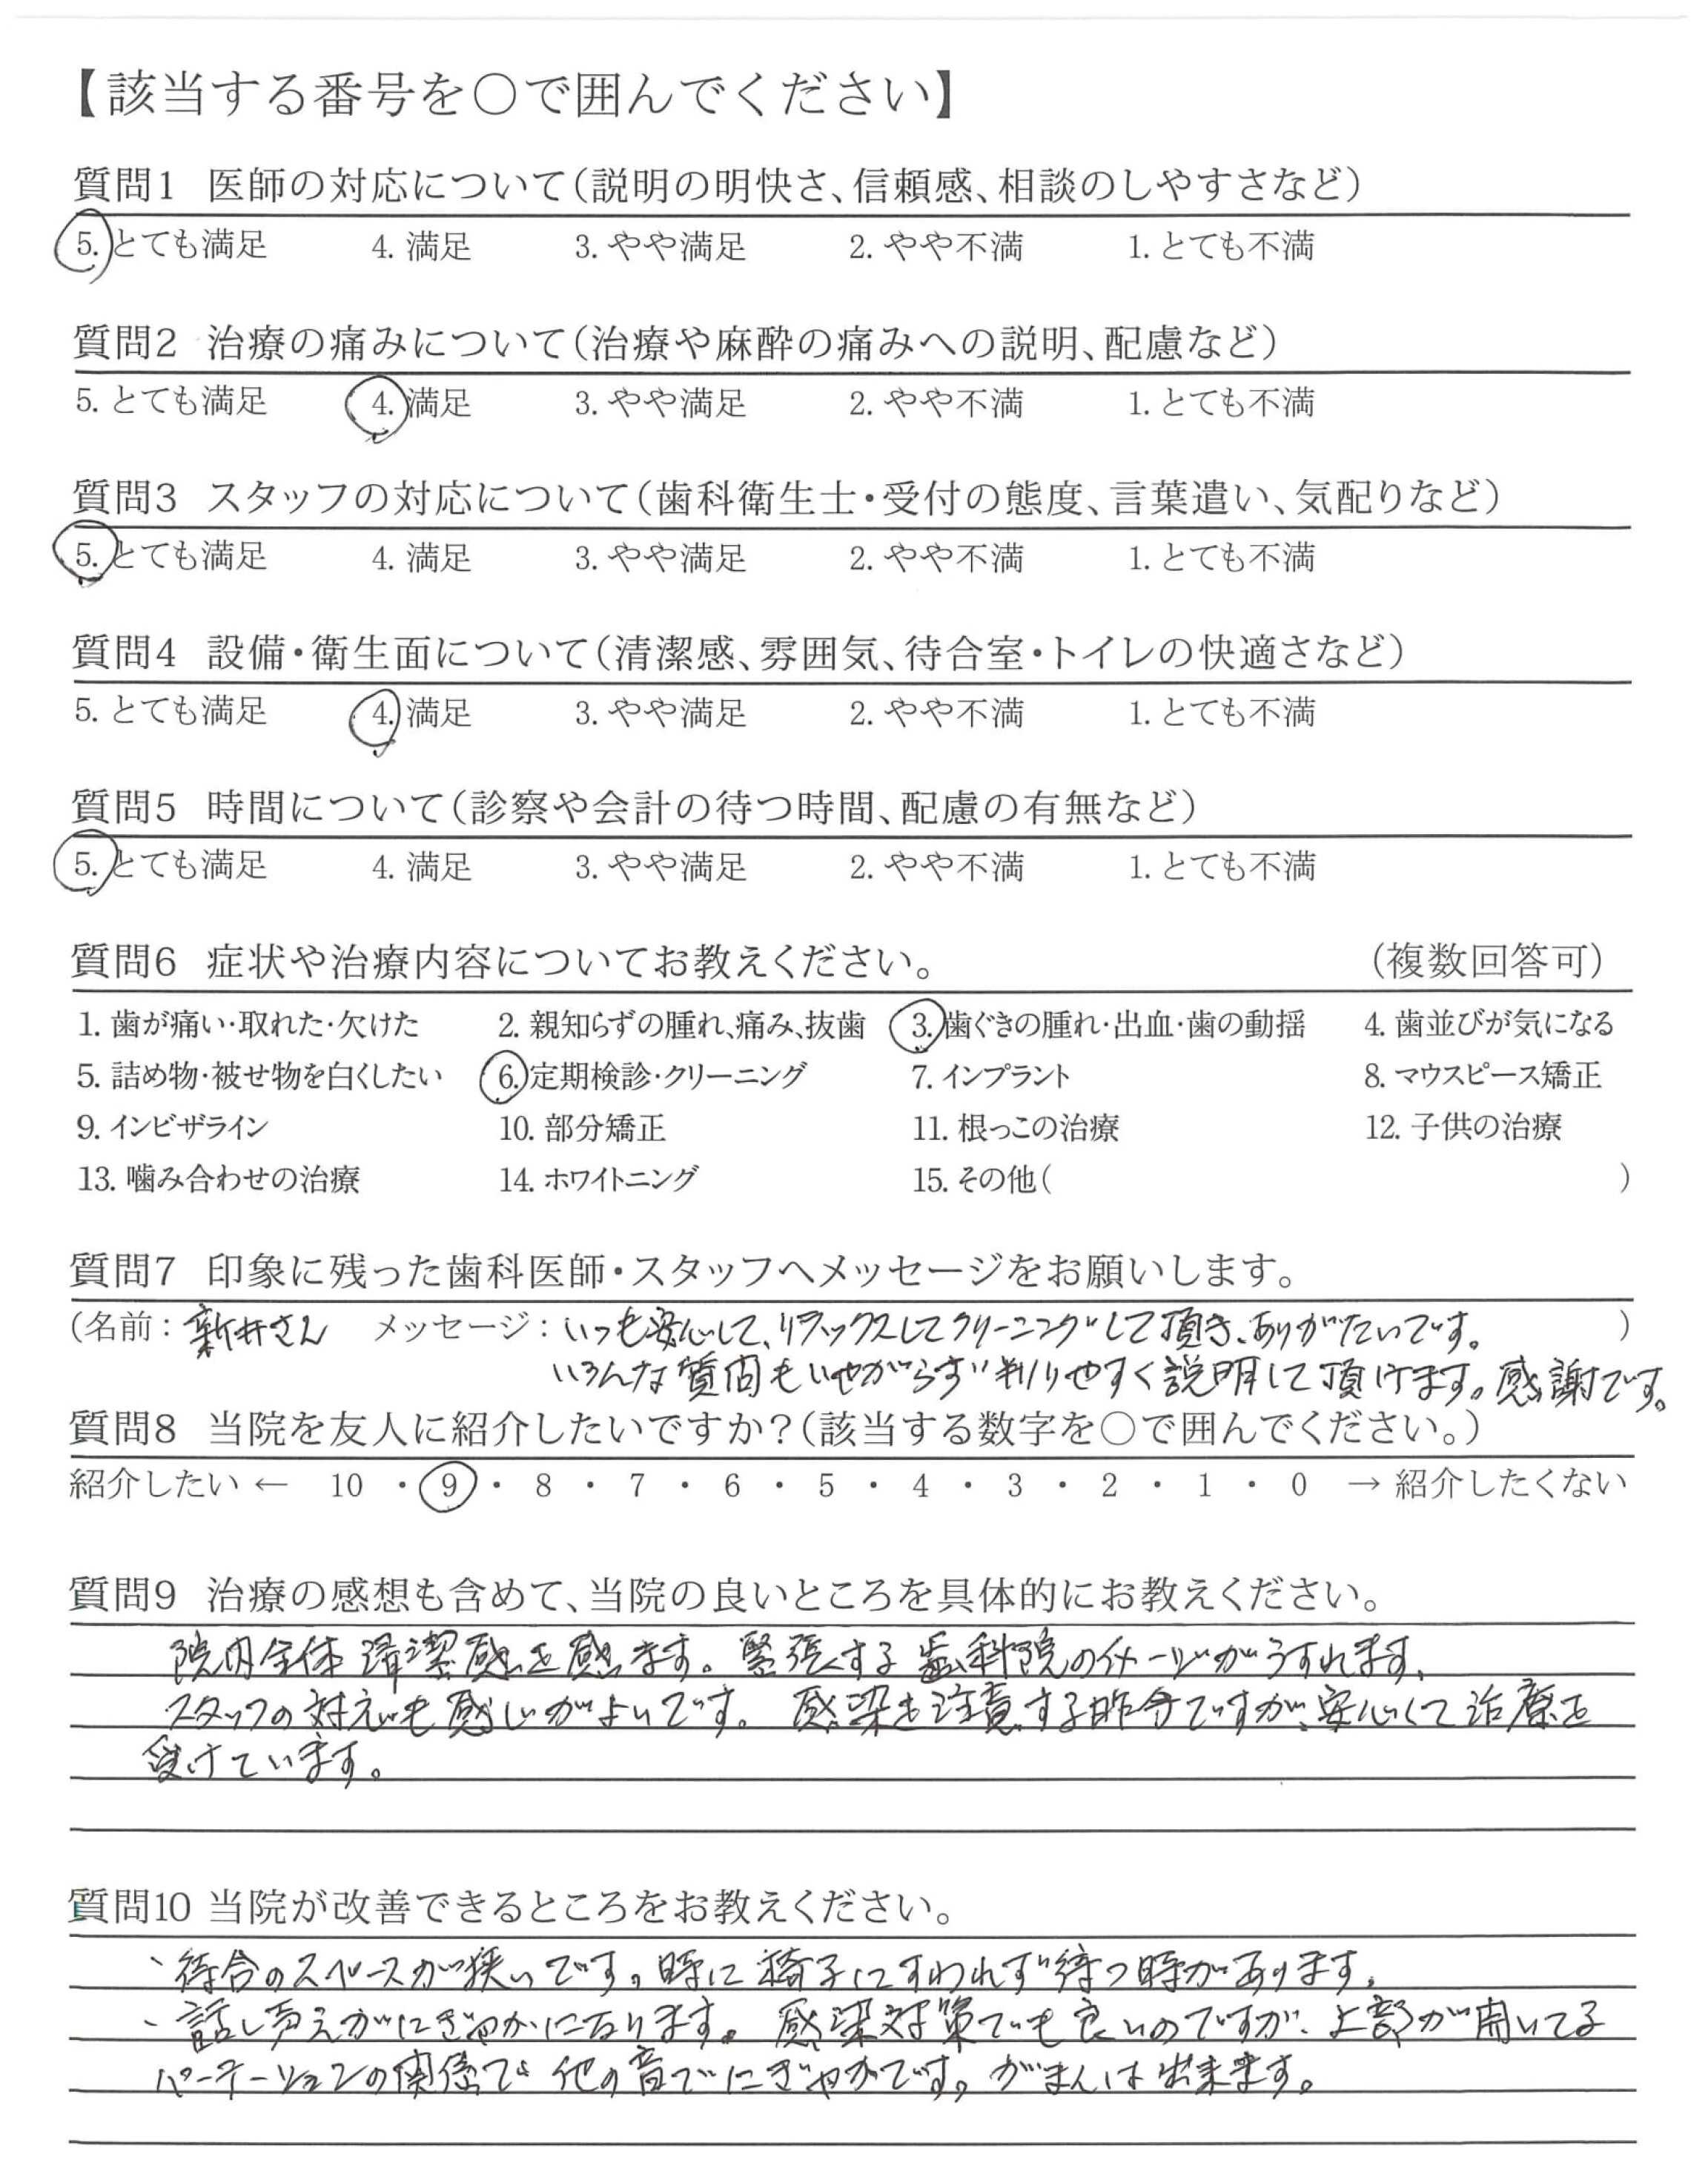 【該当する番号を〇で囲んでください】
質問1 医師の対応について(説明の明快さ、信頼感、相談のしやすさなど)
5. とても満足 4. 満足 3. やや満足 2. やや不満 1. とても不満
質問2 治療の痛みについて(治療や麻酔の痛みへの説明、配慮など)
5. とても満足 4. 満足 3. やや満足 2. やや不満 1. とても不満
質問3 スタッフの対応について(歯科衛生士・受付の態度、言葉遣い、気配りなど)
5. とても満足 4. 満足 3. やや満足 2. やや不満 1. とても不満
質問4 設備・衛生面について(清潔感、雰囲気、待合室・トイレの快適さなど)
5. とても満足 4. 満足 3. やや満足 2. やや不満 1. とても不満
質問5 時間について(診察や会計の待つ時間、配慮の有無など)
5. とても満足 4. 満足 3. やや満足 2. やや不満 1. とても不満
質問6 症状や治療内容についてお教えください。 (複数回答可)
1. 歯が痛い・取れた・欠けた 2. 親知らずの腫れ、痛み、抜歯 3. 歯ぐきの腫れ・出血・歯の動揺 4. 歯並びが気になる
5. 詰め物・被せ物を白くしたい 6. 定期検診・クリーニング 7. インプラント 8. マウスピース矯正
9. インビザライン 10. 部分矯正 11. 根っこの治療 12. 子供の治療
13. 噛み合わせの治療 14. ホワイトニング 15. その他( )
質問7 印象に残った歯科医師・スタッフへメッセージをお願いします。
(名前：新井さん メッセージ：いつも安心して、リラックスしてクリーニングして頂き、ありがたいです。 )
いろんな質問もいやがらず判りやすく説明して頂けます。感謝です。
質問8 当院を友人に紹介したいですか？(該当する数字を〇で囲んでください。)
紹介したい ← 10 ・ 9 ・ 8 ・ 7 ・ 6 ・ 5 ・ 4 ・ 3 ・ 2 ・ 1 ・ 0 → 紹介したくない
質問9 治療の感想も含めて、当院の良いところを具体的にお教えください。
院内全体清潔感を感じます。緊張する歯科院のイメージがうすれます。
スタッフの対応も感じがよいです。感染を注意する昨今ですが、安心して治療を
受けています。
質問10 当院が改善できるところをお教えください。
・待合のスペースが狭いです。時に椅子にすわれず待つ時があります。
・話し声えがにぎやかになります。感染対策でも良いのですが、上部が開いてる
パーテーションの関係で他の音でにぎやかです。がまんは出来ます。